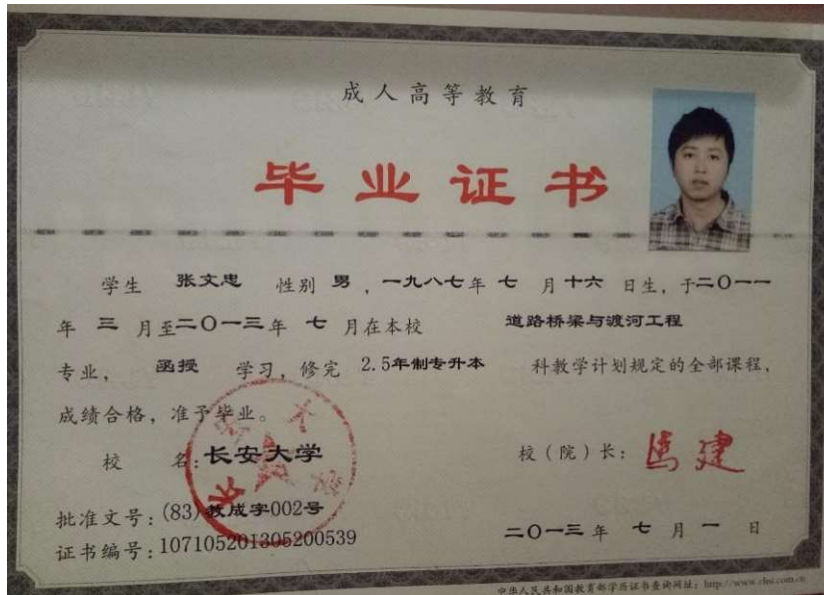 成人高等教育
毕业证书
学生 张文忠 性别 男 ，一九八七年 七 月十六 日生，于二〇一一
年 三 月至二〇一三年 七 月在本校 道路桥梁与渡河工程
专业， 函授 学习，修完 2.5年制专升本 科教学计划规定的全部课程，
成绩合格，准予毕业。
校 名：长安大学 校（院）长：
批准文号：(83)教成字002号
证书编号：107105201305200539 二〇一三年 七 月 一 日
中华人民共和国教育部学历证书查询网址：http://www.chsi.com.cn